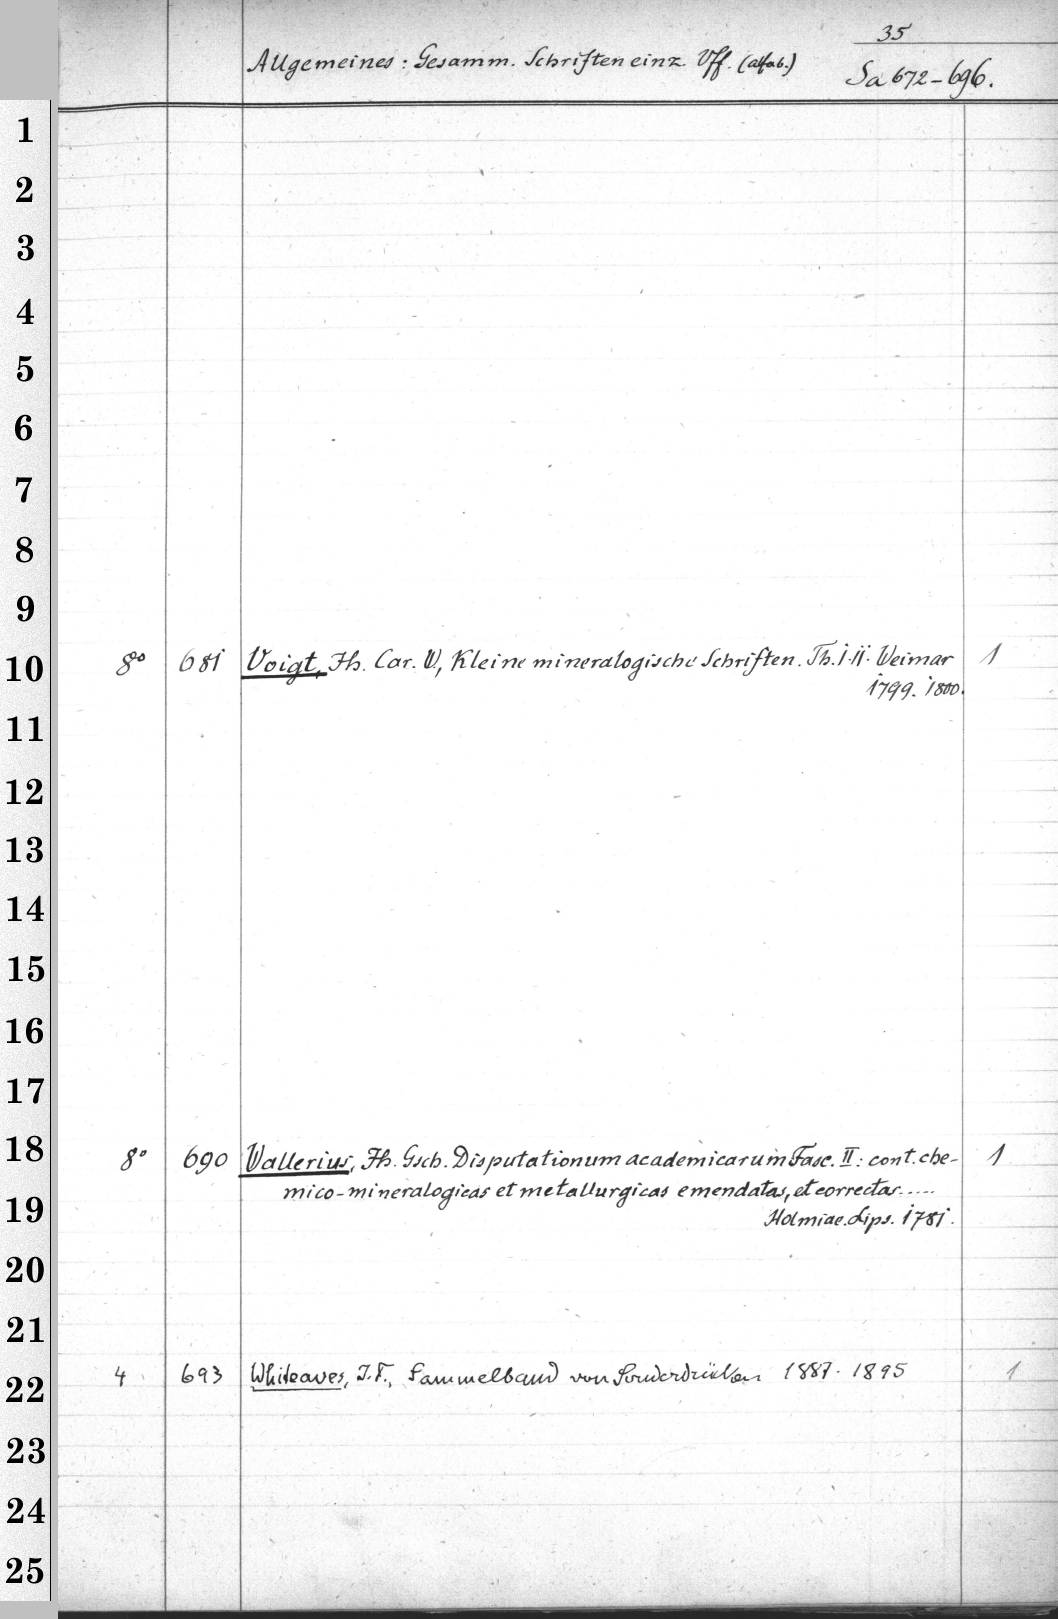 35
Allgemeines: Gesamm. Schriften einz. Vff. (alfab.)
Sa 672-696.
1
2
3
4
5
6
7
8
9
10
8° 681 Voigt, Jh. Car. W, Kleine mineralogische Schriften. Th. I.II. Weimar 1
1799. 1800.
11
12
13
14
15
16
17
18
8° 690 Wallerius, Jh. Gsch. Disputationum academicarum Fasc. II: cont. che- 1
mico-mineralogicas et metallurgicas emendatas, et correctas.....
19
Holmiae. Lips. 1781.
20
21
22
4 693 Whiteaves, J.F., Sammelband von Sonderdrücken 1887-1895 1
23
24
25